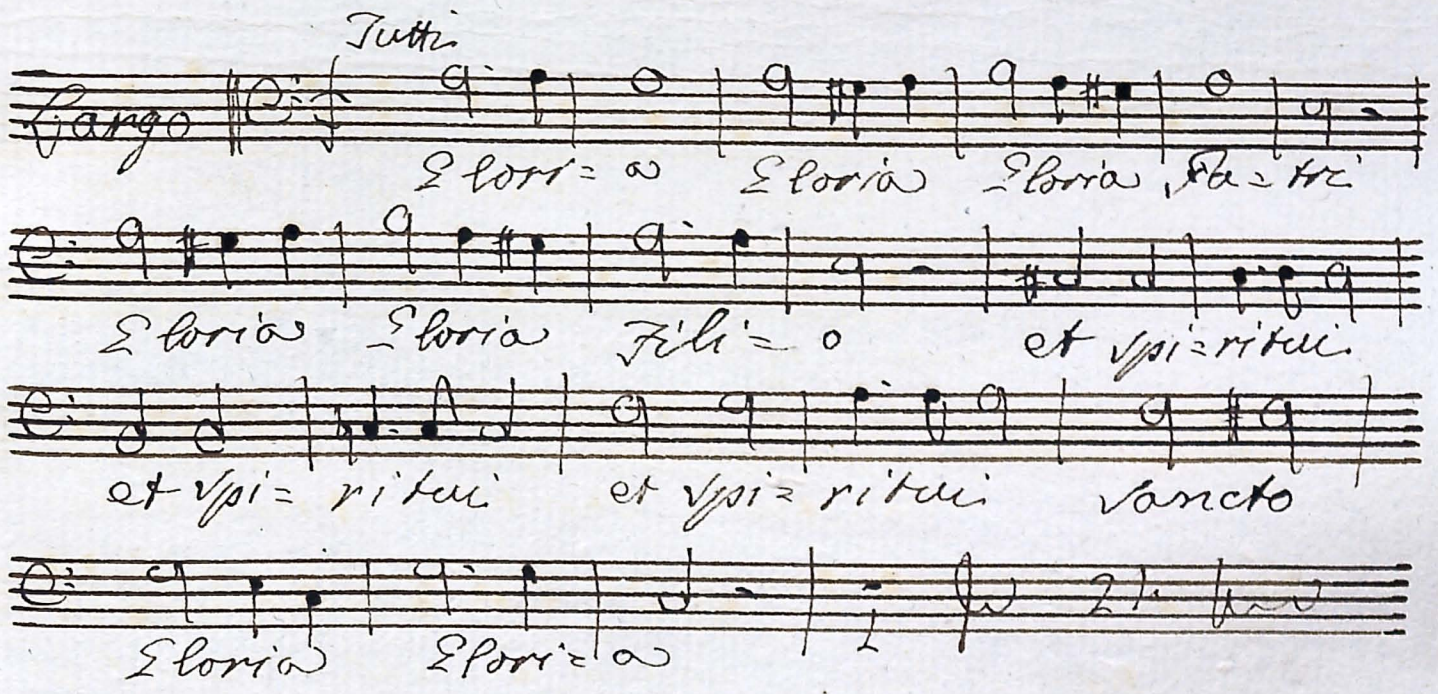 Tutti
Largo
Glori=a Gloria Gloria Pa=tri
Gloria Gloria Fili=o et Spi=ritui
et Spi= ritui et Spi= ritui Sancto
Gloria Glori=a